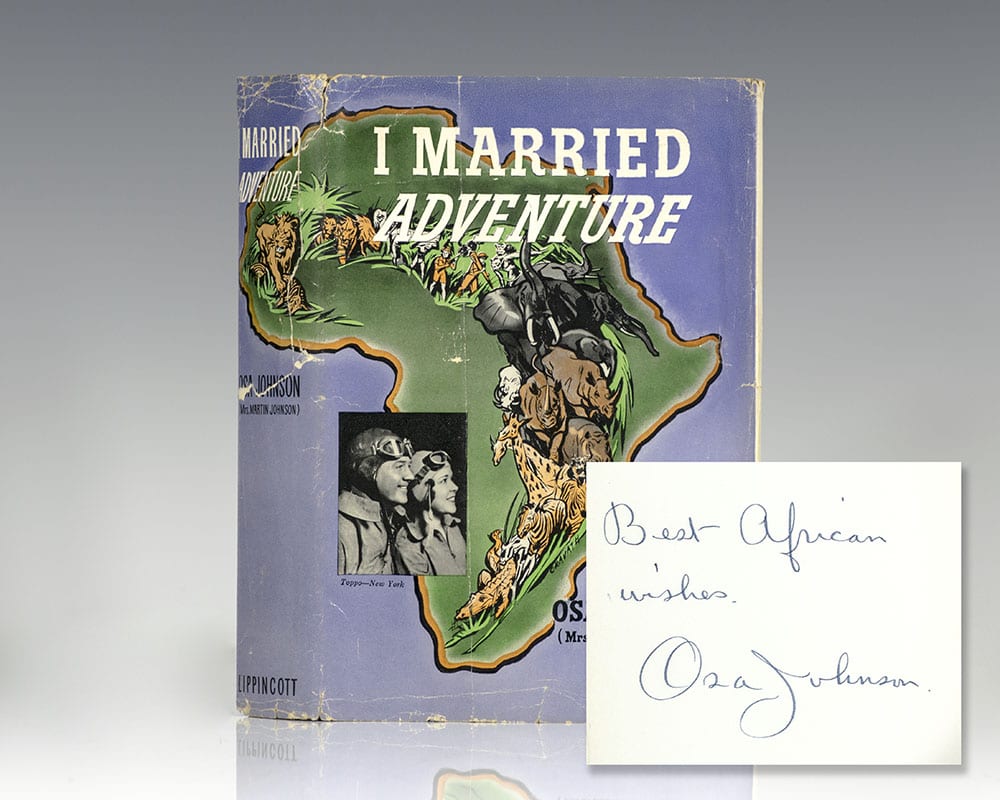 MARRIED
ADVENTURE
OSA JOHNSON
(Mrs. MARTIN JOHNSON)
LIPPINCOTT
I MARRIED
ADVENTURE
Toppo—New York
OS
(Mrs
Best African
wishes.
Osa Johnson.